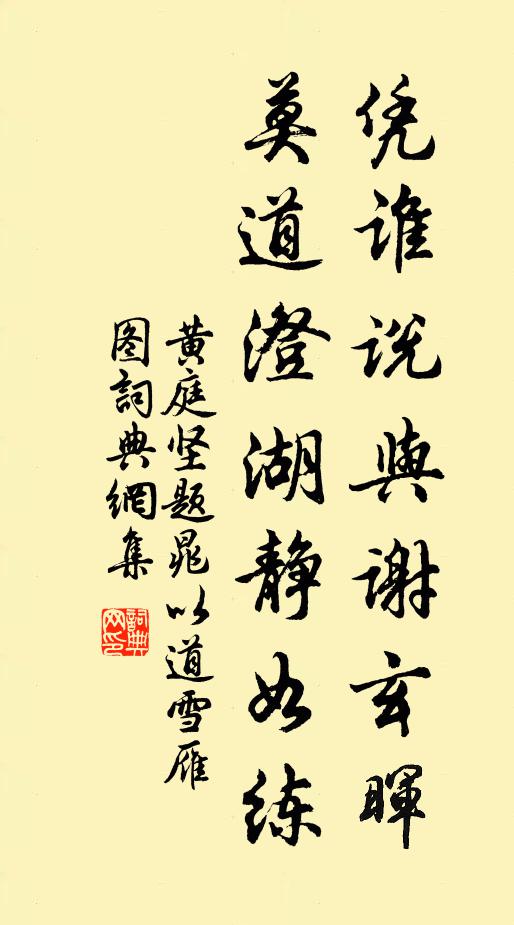 凭谁説與謝玄暉
莫道澄湖静如练
黄庭坚题晁以道雪雁
图詞典網集
詞典
网印